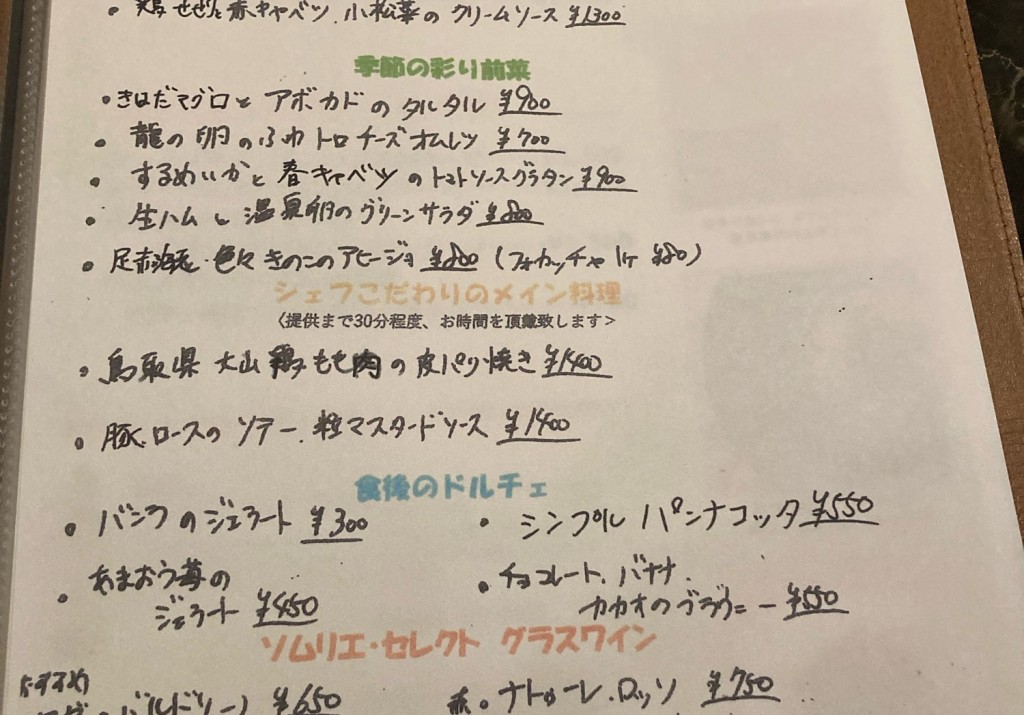 ・鶏せせり 赤キャベツ、小松菜の クリームソース ¥1300
季節の彩り前菜
・きはだマグロと アボカドの タルタル ¥900
・龍の卵のふわトロチーズオムレツ ¥700
・するめいかと 春キャベツのトマトソースグラタン ¥900
・生ハムと 温泉卵の グリーンサラダ ¥800
・足赤海老・色々きのこのアヒージョ ¥800 (フォカッチャ 1ケ ¥80)
シェフこだわりのメイン料理
〈提供まで30分程度、お時間を頂戴致します>
・鳥取県 大山鶏もも肉の皮パリ焼き ¥1400
・豚ロースの ソテー、粒マスタードソース ¥1400
食後のドルチェ
・バニラのジェラート ¥300
・シンプル パンナコッタ ¥550
・あまおう苺の
ジェラート ¥450
・チョコレート、バナナ、
カカオのブラウニー ¥550
ソムリエ・セレクト グラスワイン
おすすめ
¥650
赤・ナトゥーレ・ロッソ ¥750